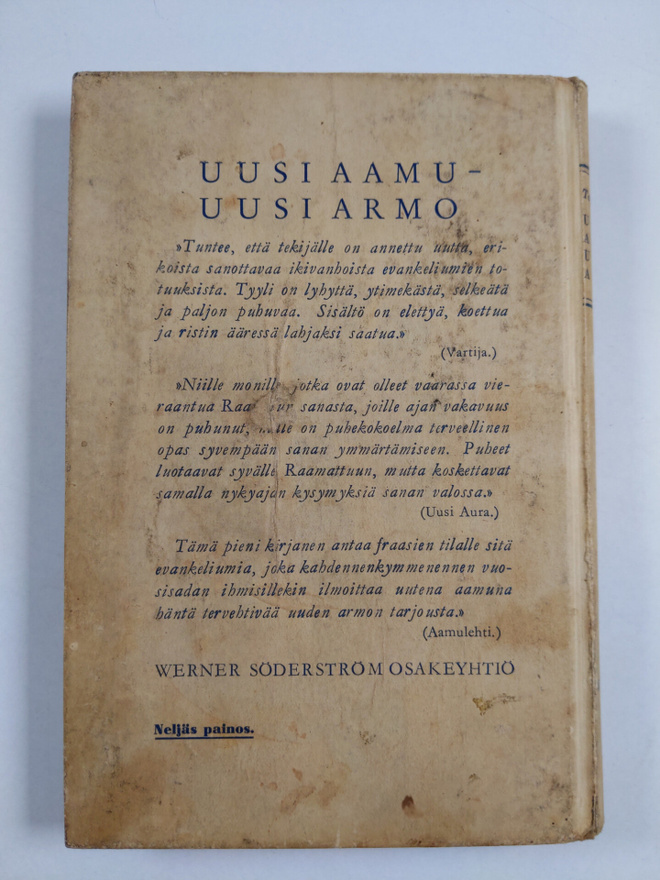 UUSI AAMU-
UUSI ARMO
»Tuntee, että tekijälle on annettu uutta, eri-
koista sanottavaa ikivanhoista evankeliumien to-
tuuksista. Tyyli on lyhyttä, ytimekästä, selkeätä
ja paljon puhuvaa. Sisältö on elettyä, koettua
ja ristin ääressä lahjaksi saatua.»
(Vartija.)
»Niille monille, jotka ovat olleet vaarassa vie-
raantua sanasta, joille ajan vakavuus
on puhunut, on puhekokoelma terveellinen
opas syvempään sanan ymmärtämiseen. Puheet
luotaavat syvälle Raamattuun, mutta koskettavat
samalla nykyajan kysymyksiä sanan valossa.»
(Uusi Aura.)
Tämä pieni kirjanen antaa fraasien tilalle sitä
evankeliumia, joka kahdennenkymmenennen vuo-
sisadan ihmisillekin ilmoittaa uutena aamuna
häntä tervehtivää uuden armon tarjousta.»
(Aamulehti.)
WERNER SÖDERSTRÖM OSAKEYHTIÖ
Neljäs painos.